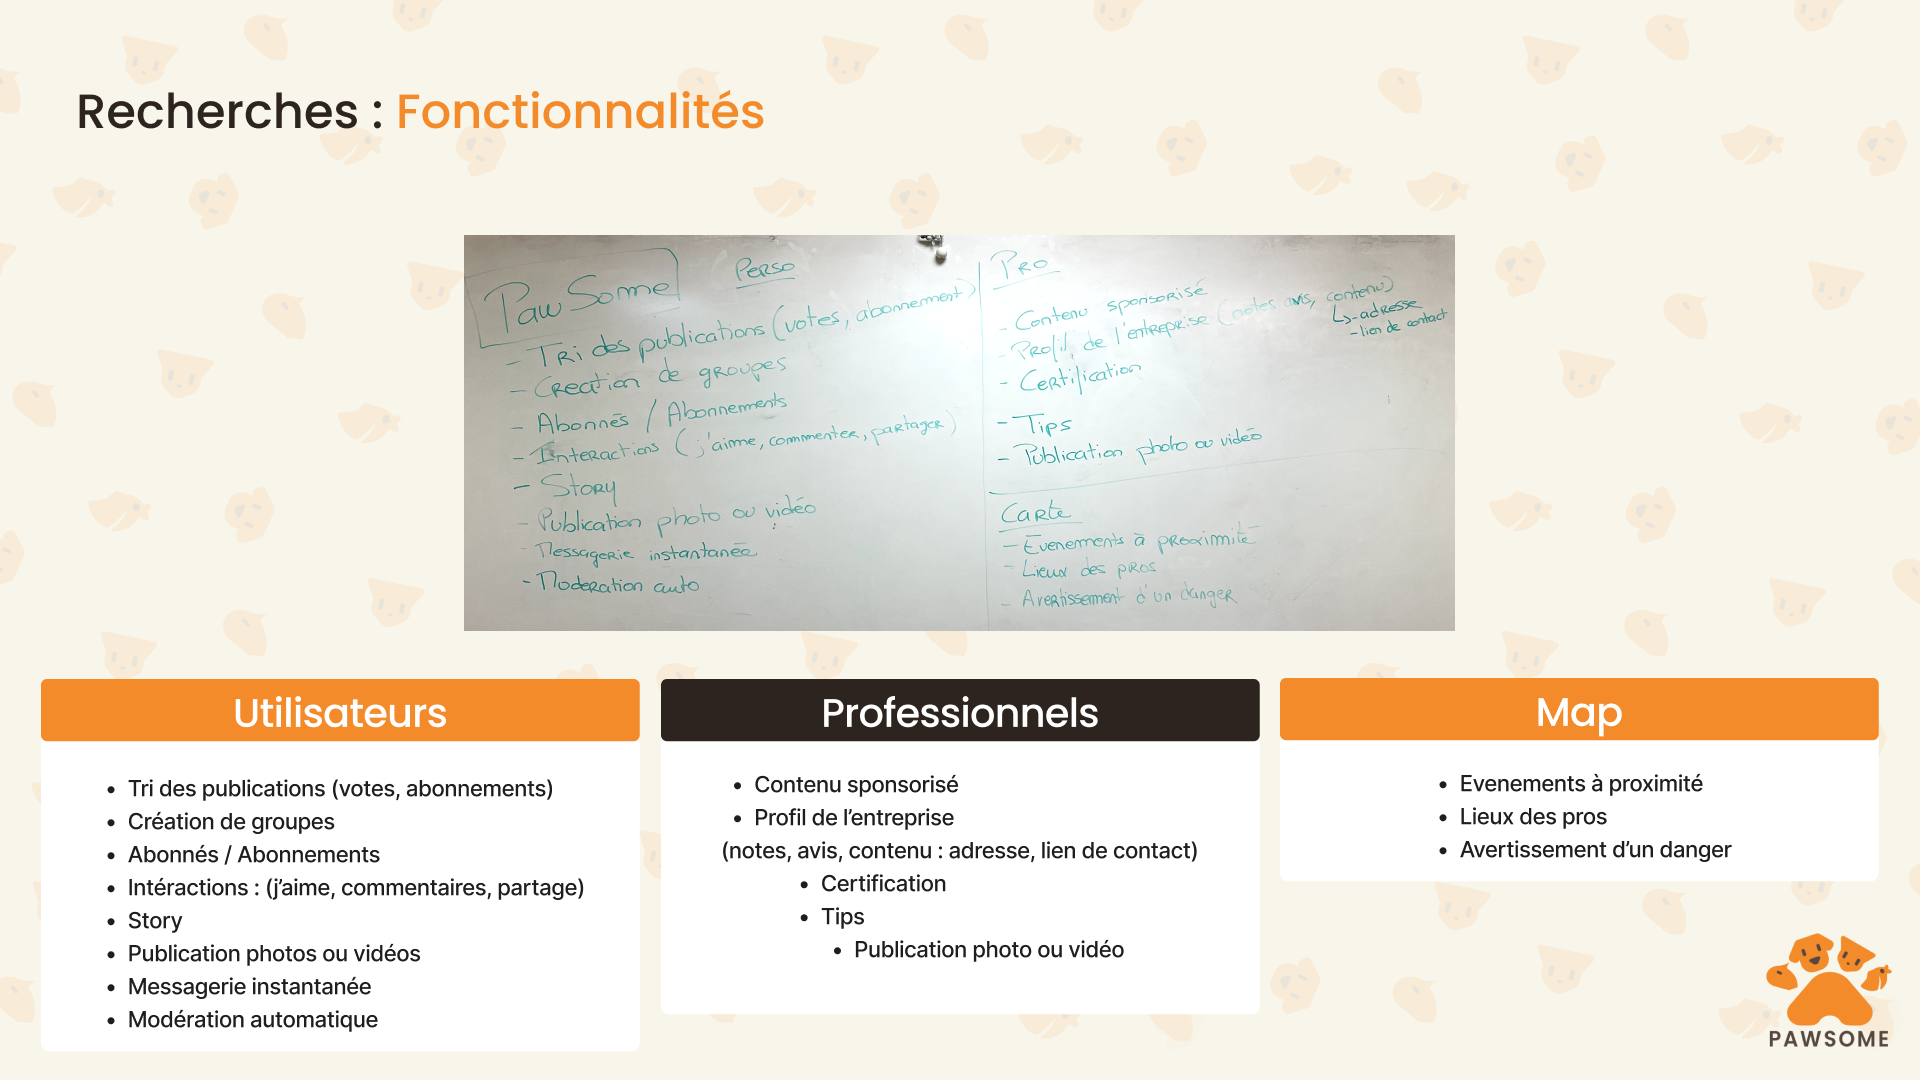 Recherches : Fonctionnalités
PawSome
Perso
- Tri des publications (votes, abonnement)
- Creation de groupes
- Abonnés / Abonnements
- Interactions (j'aime, commenter, partager)
- Story
- Publication photo ou vidéo
- Messagerie instantanée
- Moderation auto
Pro
- Contenu sponsorisé
- Profil de l'entreprise (notes avis, contenu)
↳ - adresse
- lien de contact
- Certification
- Tips
- Publication photo ou vidéo
Carte
- Evenements à proximité
- Lieux des pros
- Avertissement d'un danger
Utilisateurs
• Tri des publications (votes, abonnements)
• Création de groupes
• Abonnés / Abonnements
• Intéractions : (j’aime, commentaires, partage)
• Story
• Publication photos ou vidéos
• Messagerie instantanée
• Modération automatique
Professionnels
• Contenu sponsorisé
• Profil de l’entreprise
(notes, avis, contenu : adresse, lien de contact)
• Certification
• Tips
• Publication photo ou vidéo
Map
• Evenements à proximité
• Lieux des pros
• Avertissement d’un danger
PAWSOME